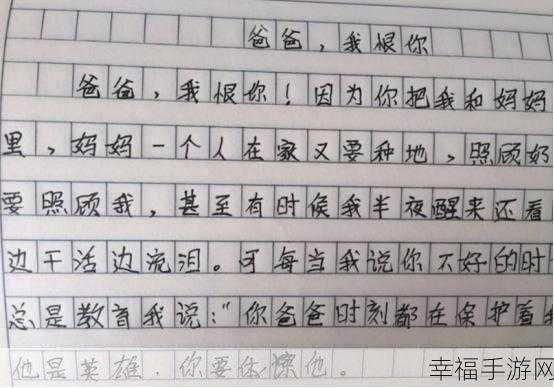 爸爸，我恨你
爸爸，我恨你！因为你把我和妈妈
里，妈妈一个人在家又要种地，照顾奶
要照顾我，甚至有时候我半夜醒来还看
边干活边流泪。可每当我说你不好的时
总是教育我说：“你爸爸时刻都在保护着
他是英雄．你要体谅他。
幸福手游网